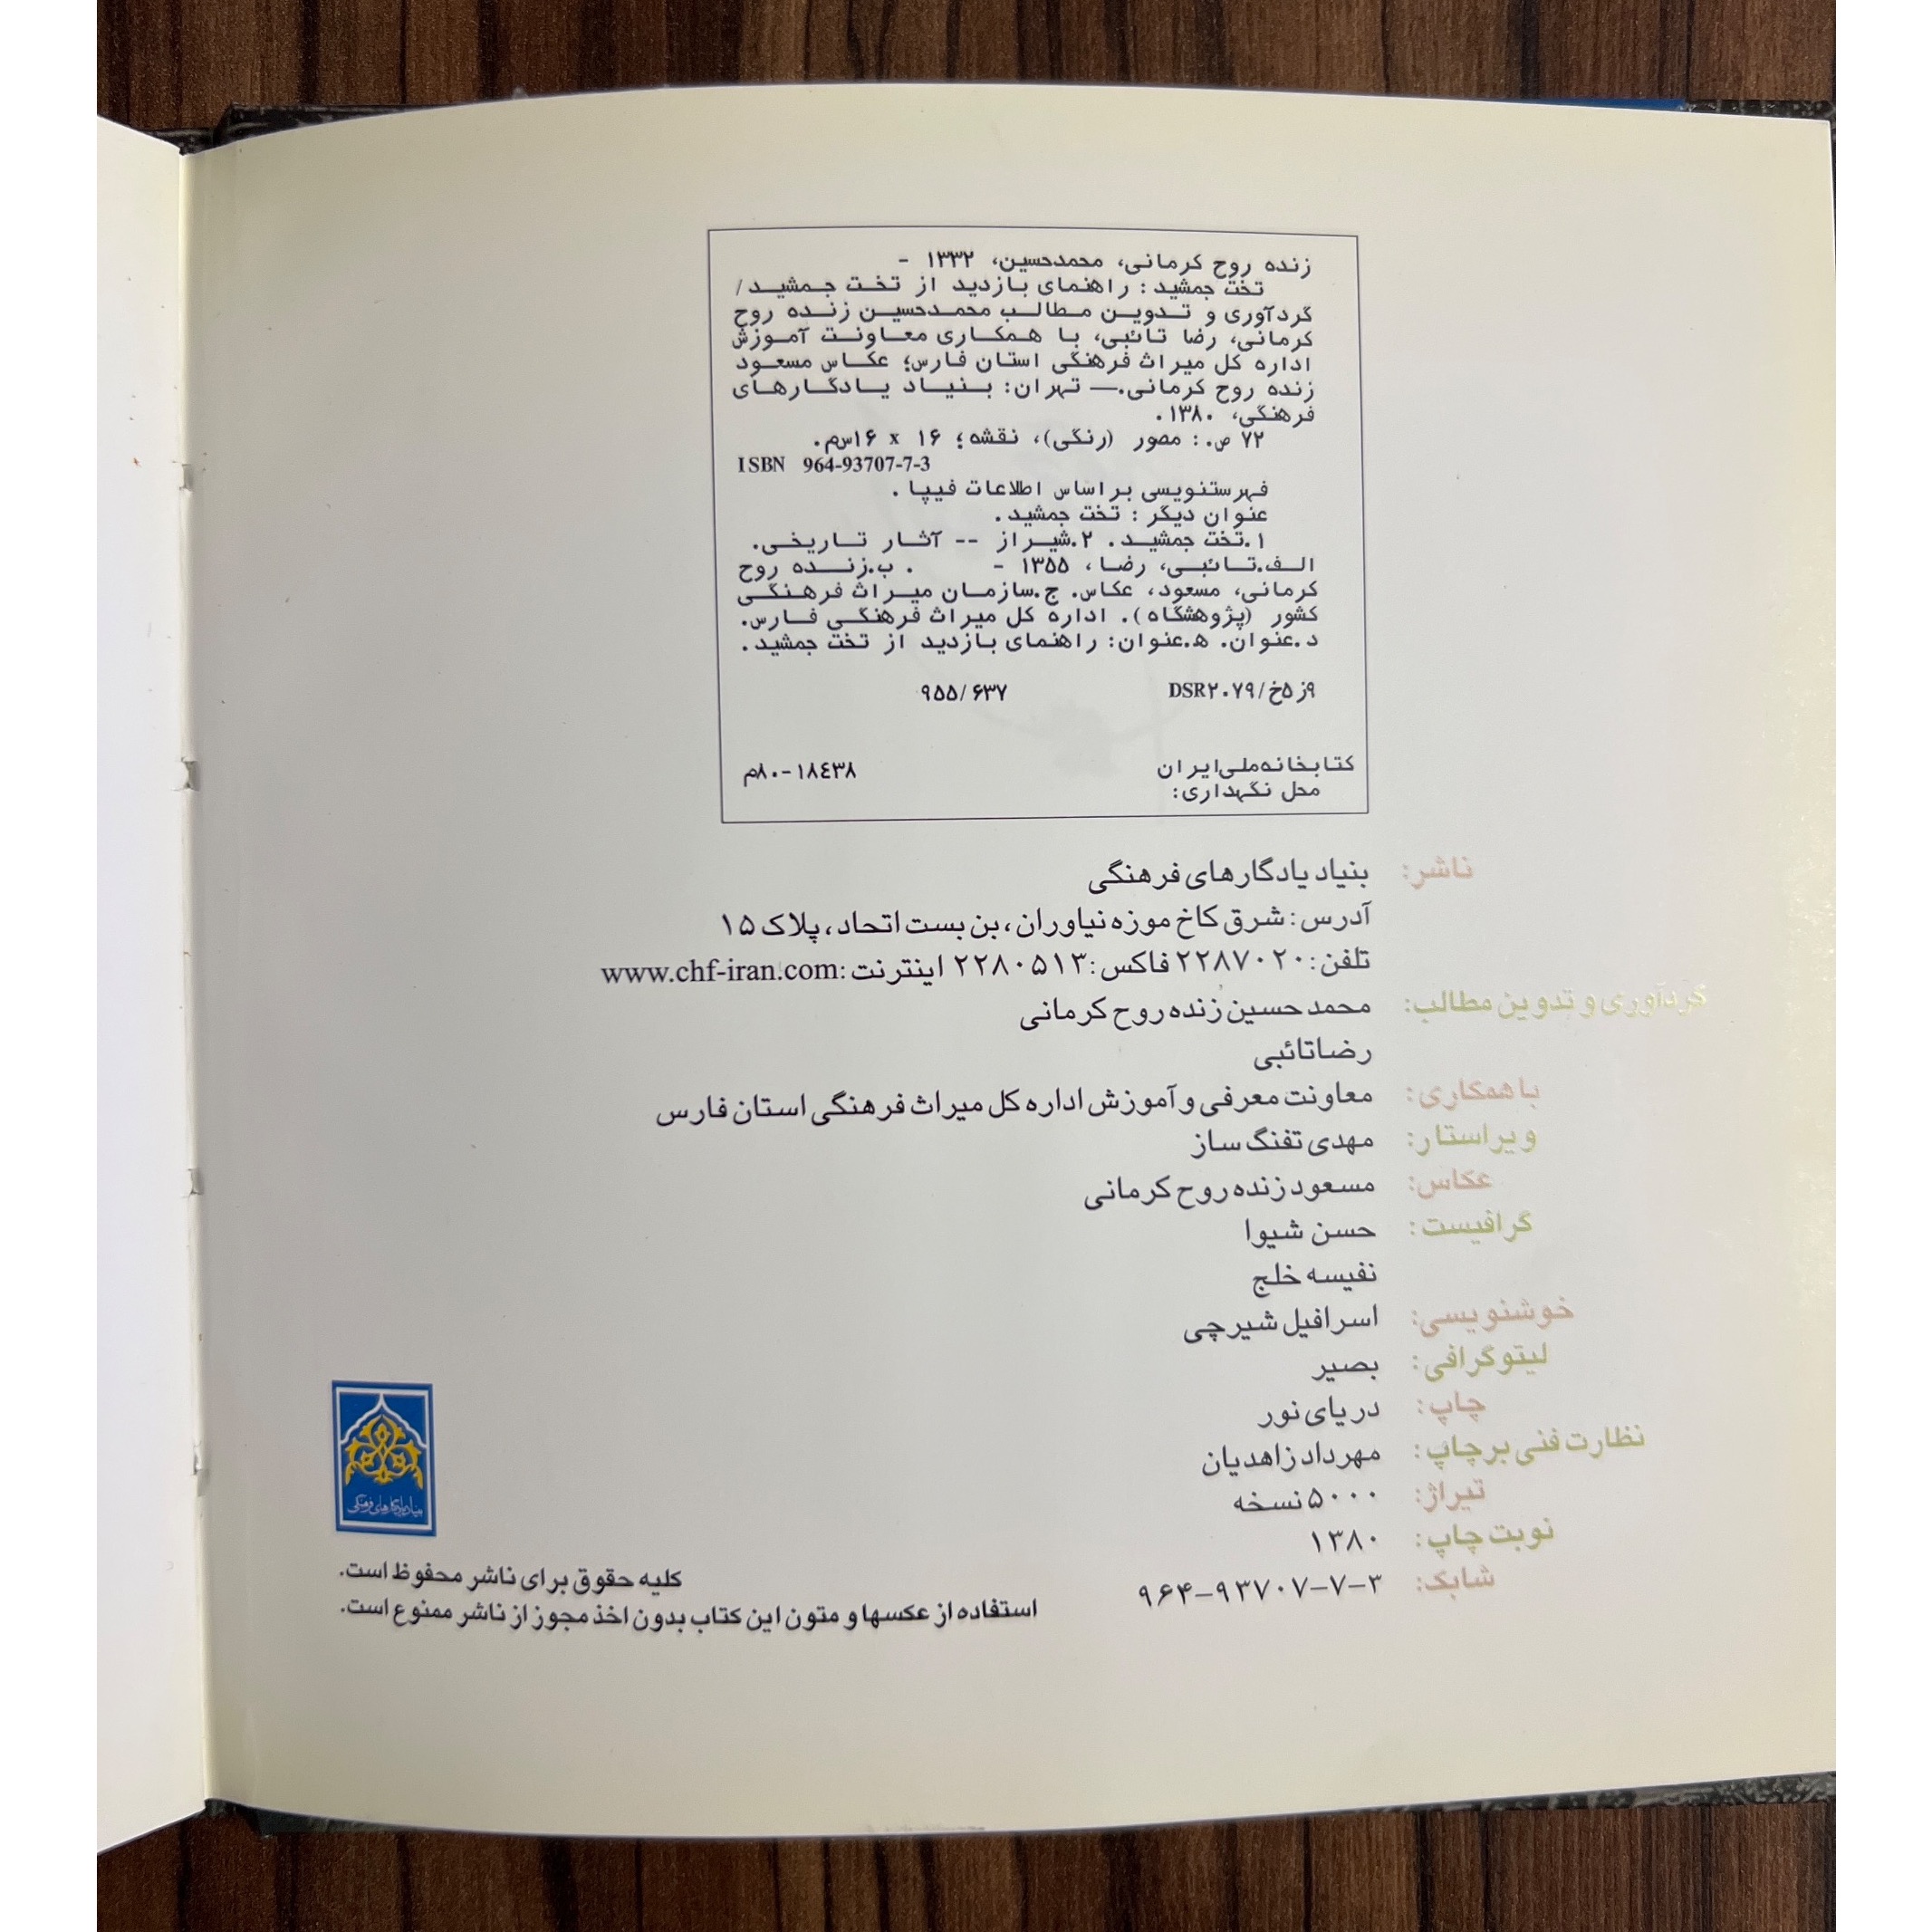 زنده روح کرمانی، محمدحسین، ۱۳۳۲ -
تخت جمشید : راهنمای بازدید از تخت جمشید/
گردآوری و تدوین مطالب محمدحسین زنده روح
کرمانی، رضا تائبی، با همکاری معاونت آموزش
اداره کل میراث فرهنگی استان فارس؛ عکاس مسعود
زنده روح کرمانی.— تهران: بنیاد یادگارهای
فرهنگی، ۱۳۸۰.
۷۲ ص.: مصور (رنگی)، نقشه؛ ۱۶ x ۱۶س‌م.
ISBN 964-93707-7-3
فهرستنویسی براساس اطلاعات فیپا.
عنوان دیگر : تخت جمشید.
۱.تخت جمشید. ۲.شیراز -- آثار تاریخی.
الف.تائبی، رضا، ۱۳۵۵ - . ب.زنده روح
کرمانی، مسعود، عکاس. ج.سازمان میراث فرهنگی
کشور (پژوهشگاه). اداره کل میراث فرهنگی فارس.
د.عنوان. ه.عنوان: راهنمای بازدید از تخت جمشید.
۹ز۵خ/DSR۲۰۷۹ ۹۵۵/۶۳۷
کتابخانه ملی ایران ۱۸۴۳۸-۸۰م
محل نگهداری:
ناشر: بنیاد یادگارهای فرهنگی
آدرس: شرق کاخ موزه نیاوران، بن بست اتحاد، پلاک ۱۵
تلفن: ۲۲۸۷۰۲۰ فاکس: ۲۲۸۰۵۱۳ اینترنت: www.chf-iran.com
گردآوری و تدوین مطالب: محمد حسین زنده روح کرمانی
رضا تائبی
با همکاری: معاونت معرفی و آموزش اداره کل میراث فرهنگی استان فارس
ویراستار: مهدی تفنگ ساز
عکاس: مسعود زنده روح کرمانی
گرافیست: حسن شیوا
نفیسه خلج
خوشنویسی: اسرافیل شیرچی
لیتوگرافی: بصیر
چاپ: دریای نور
نظارت فنی بر چاپ: مهرداد زاهدیان
تیراژ: ۵۰۰۰ نسخه
نوبت چاپ: ۱۳۸۰
شابک: ۹۶۴-۹۳۷۰۷-۷-۳
بنیاد یادگارهای فرهنگی
کلیه حقوق برای ناشر محفوظ است.
استفاده از عکسها و متون این کتاب بدون اخذ مجوز از ناشر ممنوع است.